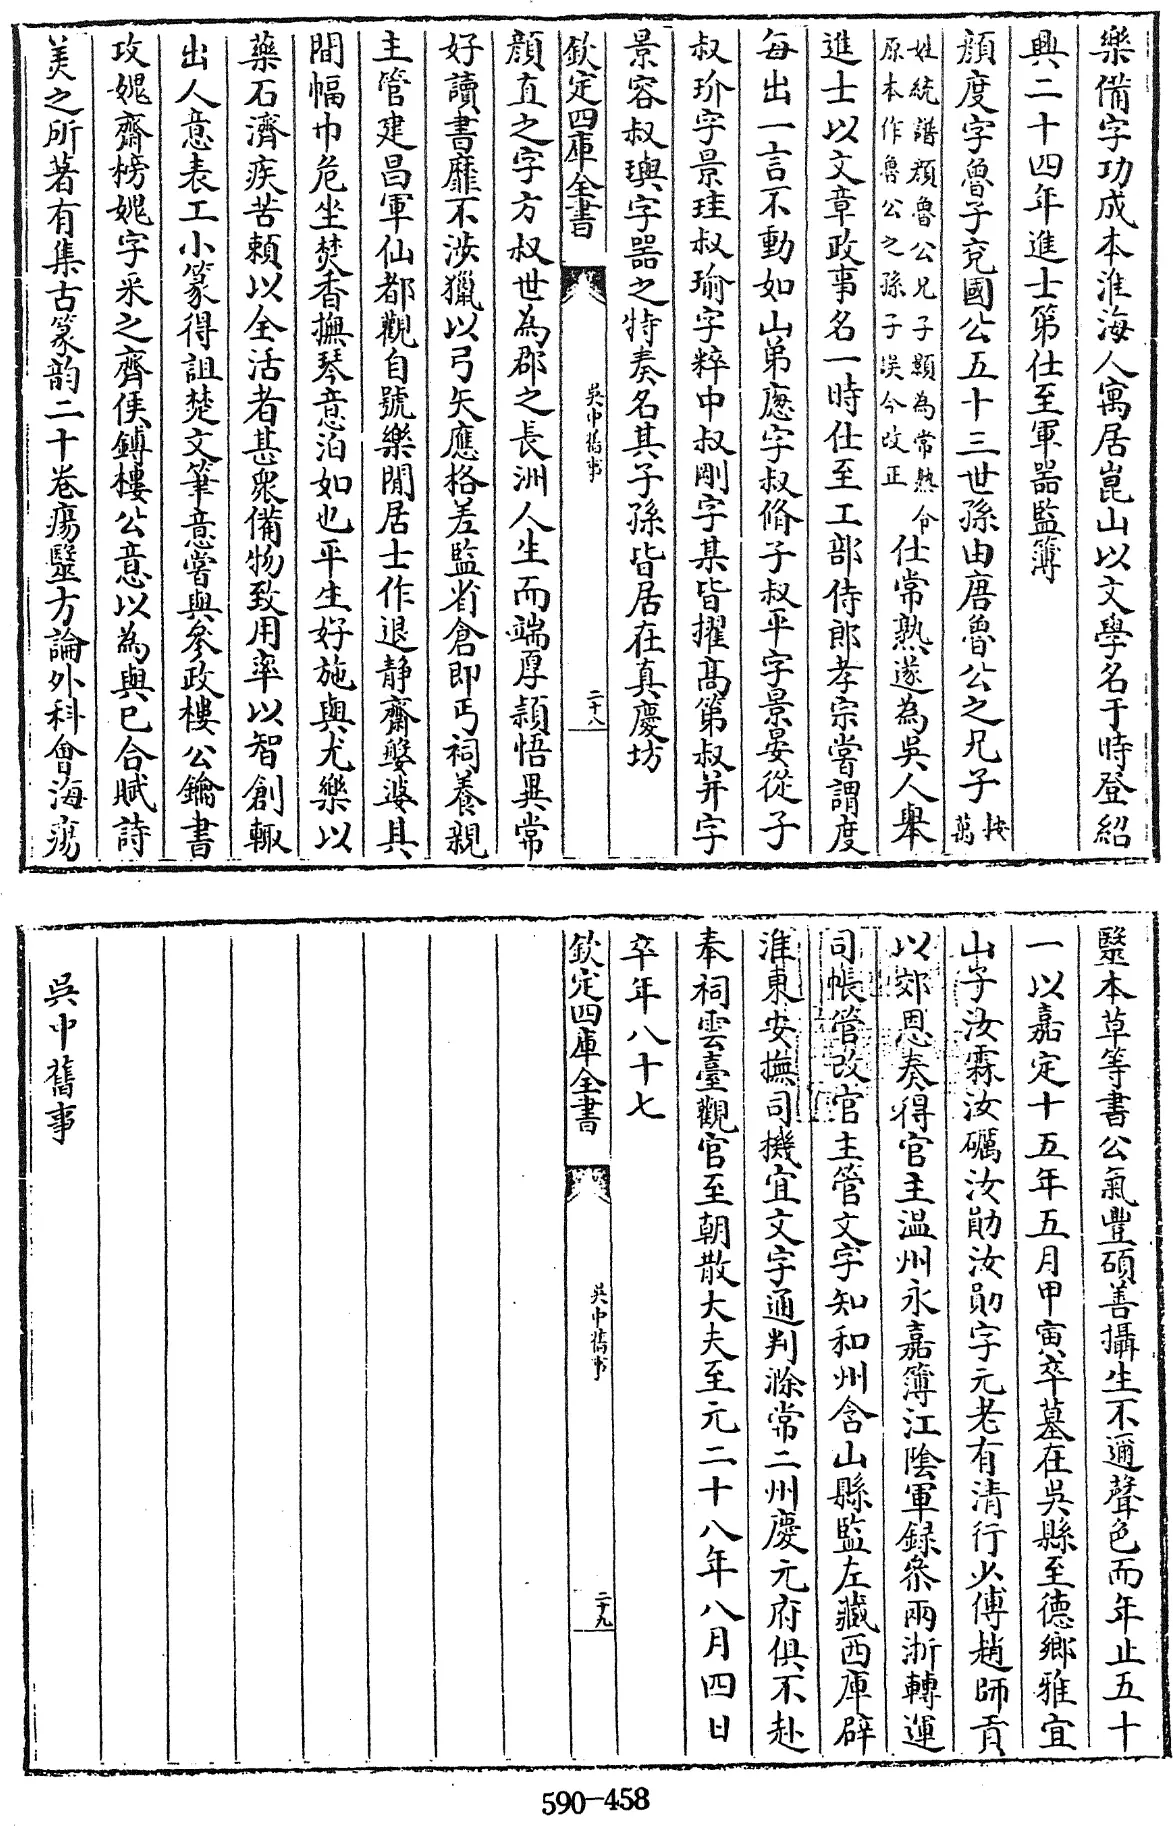 樂備字功成本淮海人寓居崑山以文學名于時登紹
興二十四年進士第仕至軍器監簿
顔度字魯子兖國公五十三世孫由唐魯公之兄子按萬
姓統譜顔魯公兄子顒為常熟令
原本作魯公之孫子誤今改正
仕常熟遂為吳人舉
進士以文章政事名一時仕至工部侍郎孝宗嘗謂度
每出一言不動如山弟應字叔脩子叔平字景晏從子
叔玠字景珪叔瑜字粹中叔剛字某皆擢髙第叔并字
景容叔璵字器之特奏名其子孫皆居在真慶坊
欽定四庫全書
吳中舊事
二十八
顔直之字方叔世為郡之長洲人生而端厚頴悟異常
好讀書靡不涉獵以弓矢應格差監省倉即丐祠養親
主管建昌軍仙都觀自號樂閒居士作退靜齋槃婆其
間幅巾危坐焚香撫琴意泊如也平生好施與尤樂以
藥石濟疾苦賴以全活者甚衆備物致用率以智創輒
出人意表工小篆得詛楚文筆意嘗與參政樓公鑰書
攻媿齋榜媿字釆之齊侯鎛樓公意以為與己合賦詩
美之所著有集古篆韵二十卷瘍毉方論外科會海瘍
毉本草等書公氣豐碩善攝生不邇聲色而年止五十
一以嘉定十五年五月甲寅卒墓在吳縣至德鄉雅宜
山子汝霖汝礪汝勛汝勛字元老有清行火傅趙師貢
以郊恩奏得官主温州永嘉簿江隂軍録叅兩浙轉運
司帳管改官主管文字知和州含山縣監左藏西庫辟
淮東安撫司機宜文字通判滁常二州慶元府俱不赴
奉祠雲臺觀官至朝散大夫至元二十八年八月四日
卒年八十七
欽定四庫全書
吳中舊事
二十九
吳中舊事
590-458